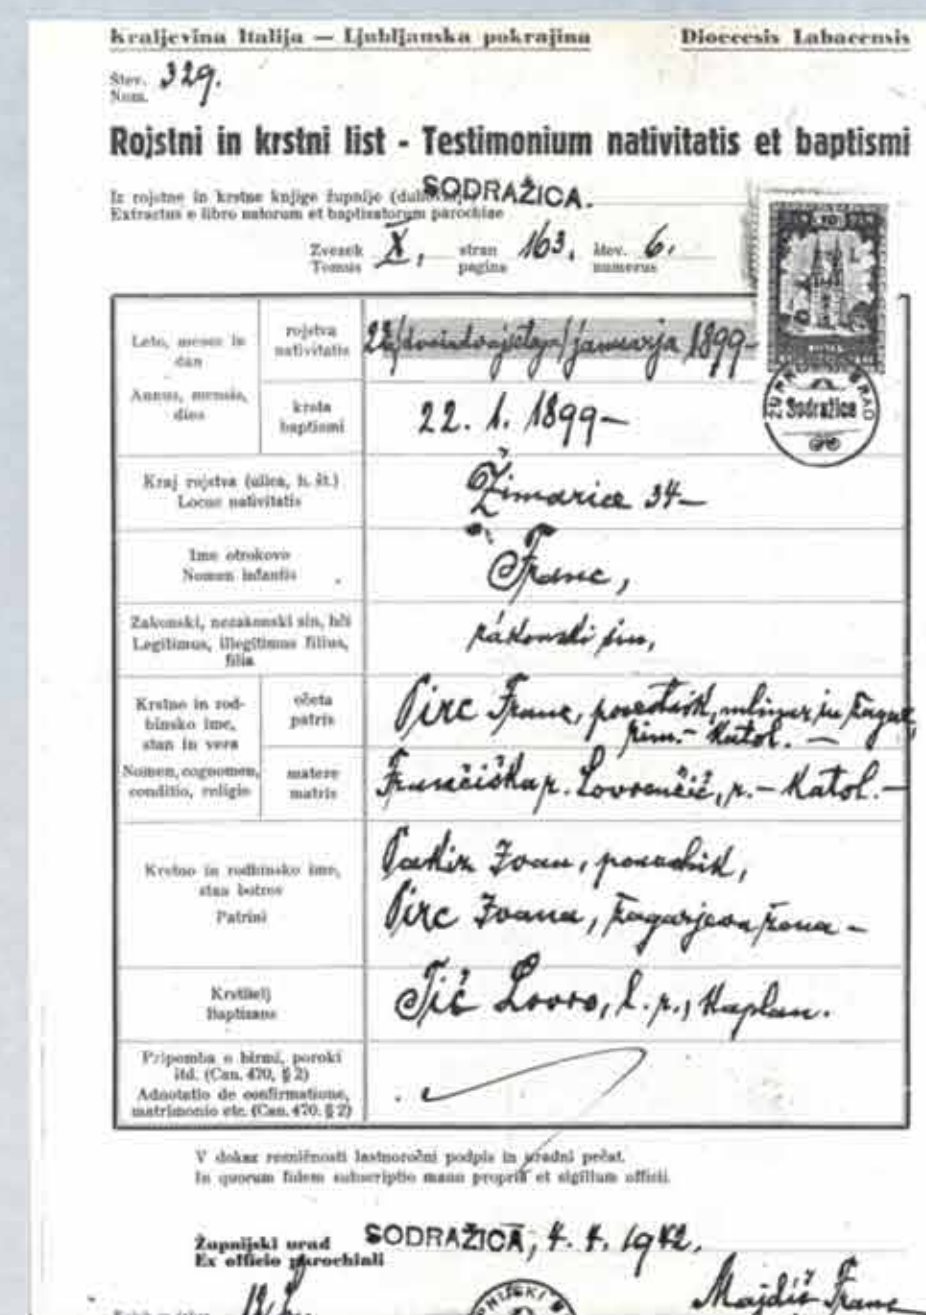 Kraljevina Italija — Ljubljanska pokrajina
Dioecesis Labacensis
Štev. 329.
Num.
Rojstni in krstni list - Testimonium nativitatis et baptismi
Iz rojstne in krstne knjige župnije SODRAŽICA.
Extractus e libro natorum et baptizatorum parochiae
Zvezek X, stran 163. štev. 6.
Tomus pagina numerus
Leto, mesec in dan
Annus, mensis, dies
rojstva
nativitatis
22/dvaindvajsetega/januarja 1899-
krsta
baptismi
22. 1. 1899-
ŽUP URAD
Sodražica
Kraj rojstva (ulica, h. št.)
Locus nativitatis
Žimarice 34-
Ime otrokovo
Nomen infantis
Franc,
Zakonski, nezakonski sin, hči
Legitimus, illegitimus filius, filia
zakonski sin,
Krstno in rodbinsko ime, stan in vera
Nomen, cognomen, conditio, religio
očeta
patris
Pirc Franc, posestnik, mlinar in žagar,
rim.- katol. -
matere
matris
Frančiška r. Lovrenčič, r.- katol.-
Krstno in rodbinsko ime, stan botrov
Patrini
Ivan, posestnik,
Pirc Ivana, žagarjeva žena -
Krstitelj
Baptizans
Tič Lovro, l. r., kaplan.
Pripomba o birmi, poroki itd. (Can. 470, § 2)
Adnotatio de confirmatione, matrimonio etc. (Can. 470. § 2)
V dokaz resničnosti lastnoročni podpis in uradni pečat.
In quorum fidem subscriptio manu propria et sigillum officii.
Župnijski urad SODRAŽICA, 4. 4. 1942.
Ex officio parochiali
Majdič Franc